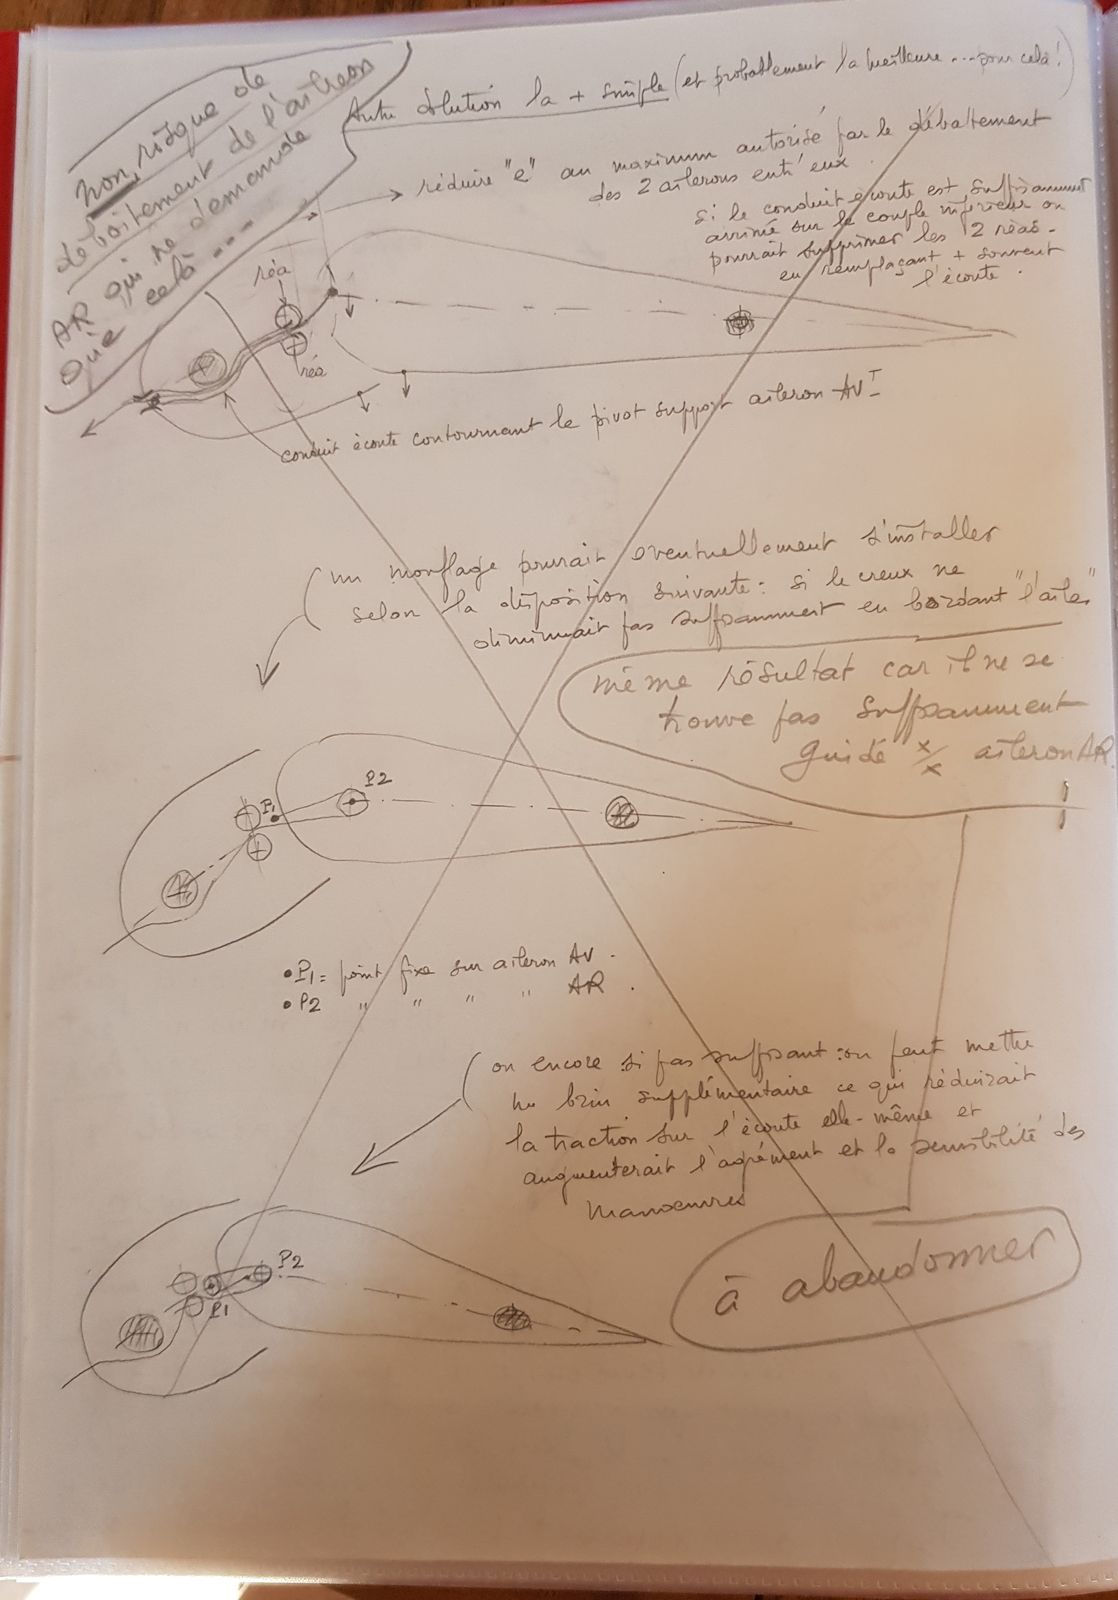 Non, risque de
déboitement de l'aileron
AR qui ne demande
que celà ....
Autre solution la + simple (et probablement la meilleure ... pour celà !)
→ réduire "e" au maximum autorisé par le débattement
des 2 ailerons entr'eux.
si le conduit écoute est suffisamment
arrimé sur le couple inférieur on
pourrait supprimer les 2 réas -
en remplaçant + souvent
l'écoute.
réa
réa
conduit écoute contournant le pivot support aileron AVT
un mouflage pourait eventuellement s'installer
selon la disposition suivante : si le creux ne
diminuait pas suffisamment en bordant "l'aile"
même résultat car il ne se
trouve pas suffisamment
guidé x/x aileron AR.
P1
P2
• P1 = point fixe sur aileron AV.
• P2 " " " " AR.
ou encore si pas suffisant : on peut mettre
un brin supplémentaire ce qui réduirait
la traction sur l'écoute elle-même et
augmenterait l'agrément et la sensibilité des
manoeuvres
P2
P1
à abandonner